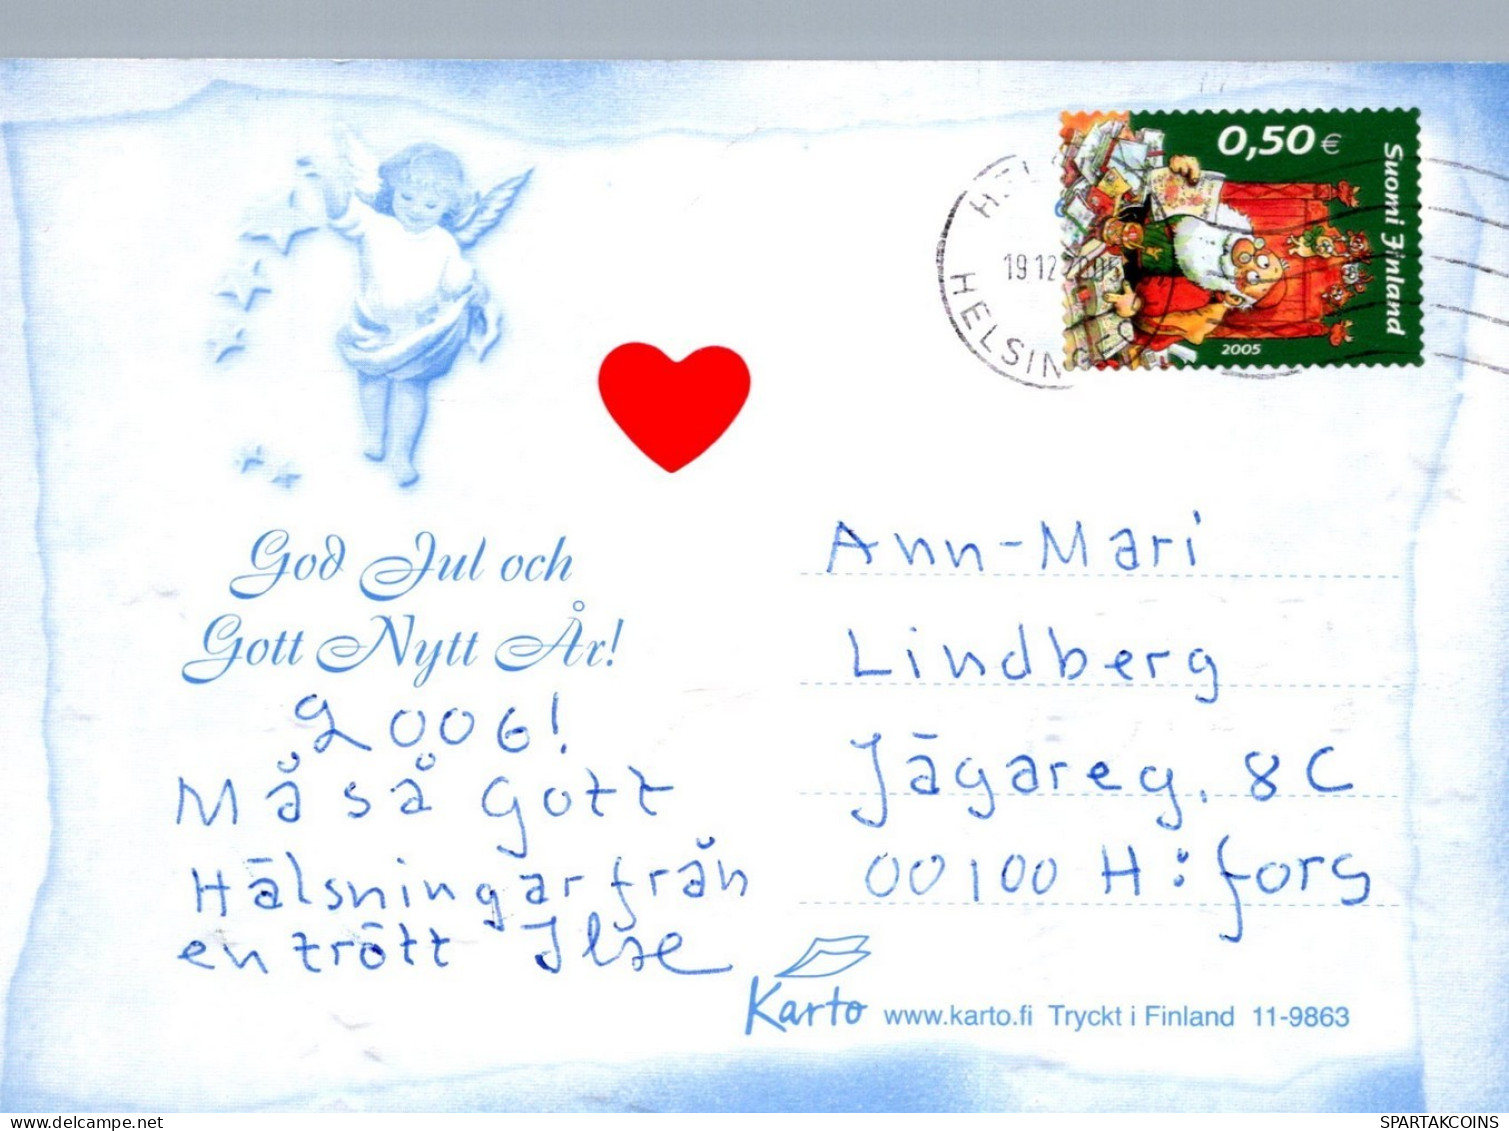 0,50 €
Suomi Finland
2005
19.12.2005
HELSINGFO
God Jul och
Gott Nytt År!
2006!
Må så Gott
Hälsningar från
en trött Ilse
Ann-Mari
Lindberg
Jägareg. 8 C
00100 H:fors
Karto www.karto.fi Tryckt i Finland 11-9863
SPARTAKCOINS